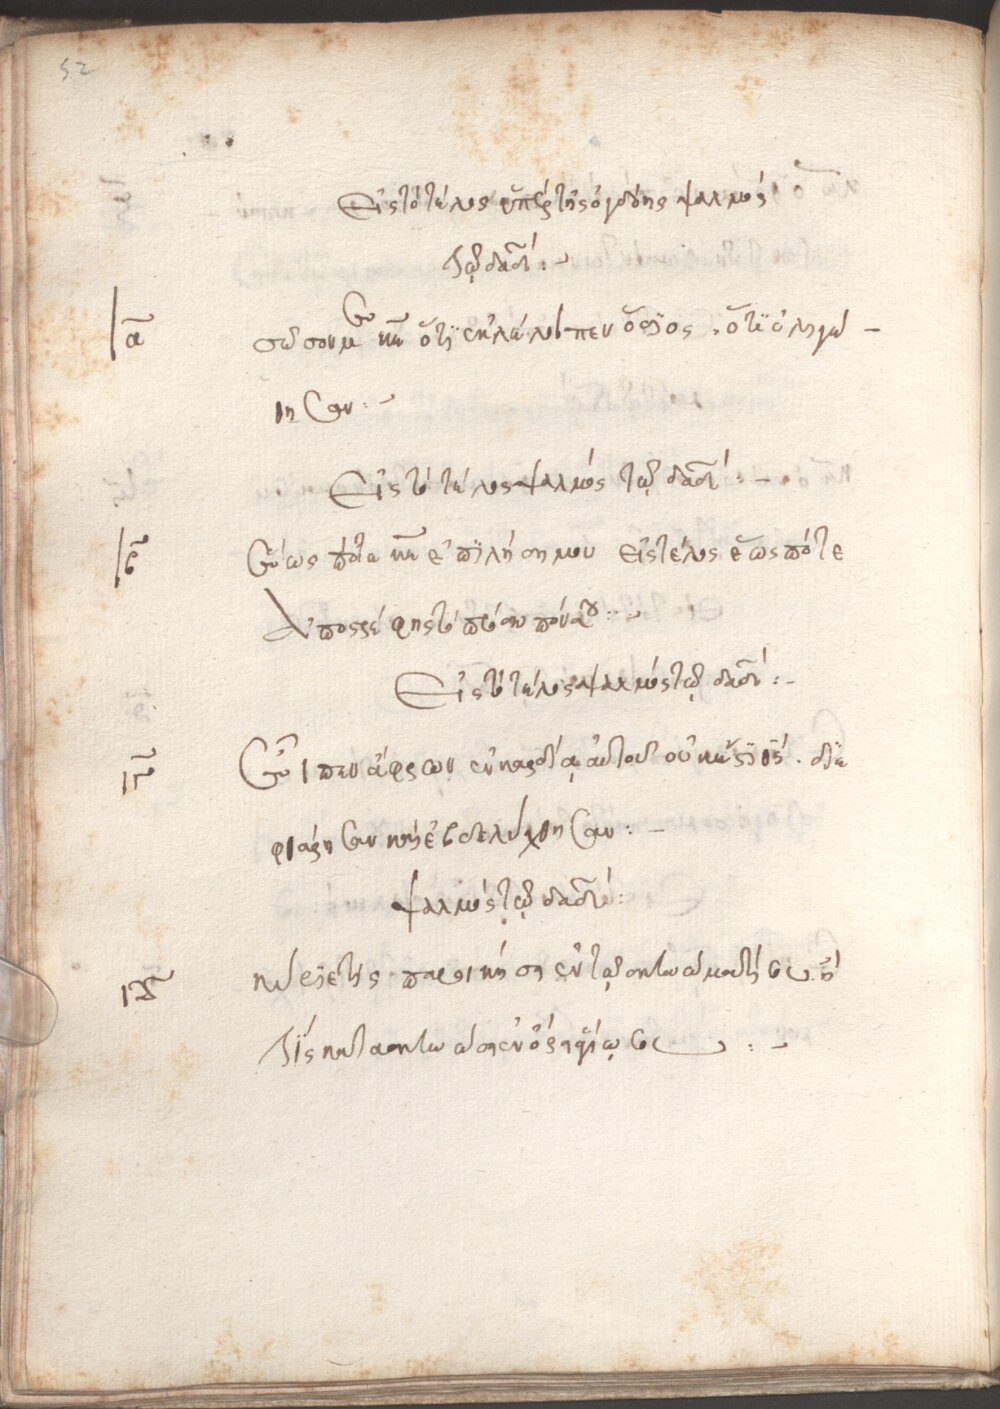 52
Εἰς τὸ τέλος ὑπὲρ τῆς ὀγδόης ψαλμός
Τῷ δαδ́ :
ια σῶσον με κε ὅτι ἐκλέλοιπεν ὅσιος . ὅτι ὀλιγώ
θησαν :
Εἰς τὸ τέλος ψαλμός τῷ δαδ́ :
ιβ ἕως πότε κε ἐπιλήση μου εἰς τέλος ἕως πότε
Ἀποστρέφης τὸ πρόσωπόν σου :
Εἰς τὸ τέλος ψαλμός τῷ δαδ́ :
ιγ εἶπεν ἄφρων ἐν καρδία αὐτοῦ οὐκ ἔστι θς . διε
φθάρησαν καὶ ἐβδελύχθησαν :
ψαλμός τῷ δαδ́ :
ιδ κύριε τίς παροικήση ἐν τῷ σκηνώματί σου ἢ
Τίς κατασκηνώση ἐν ὄρει ἁγίῳ σου :